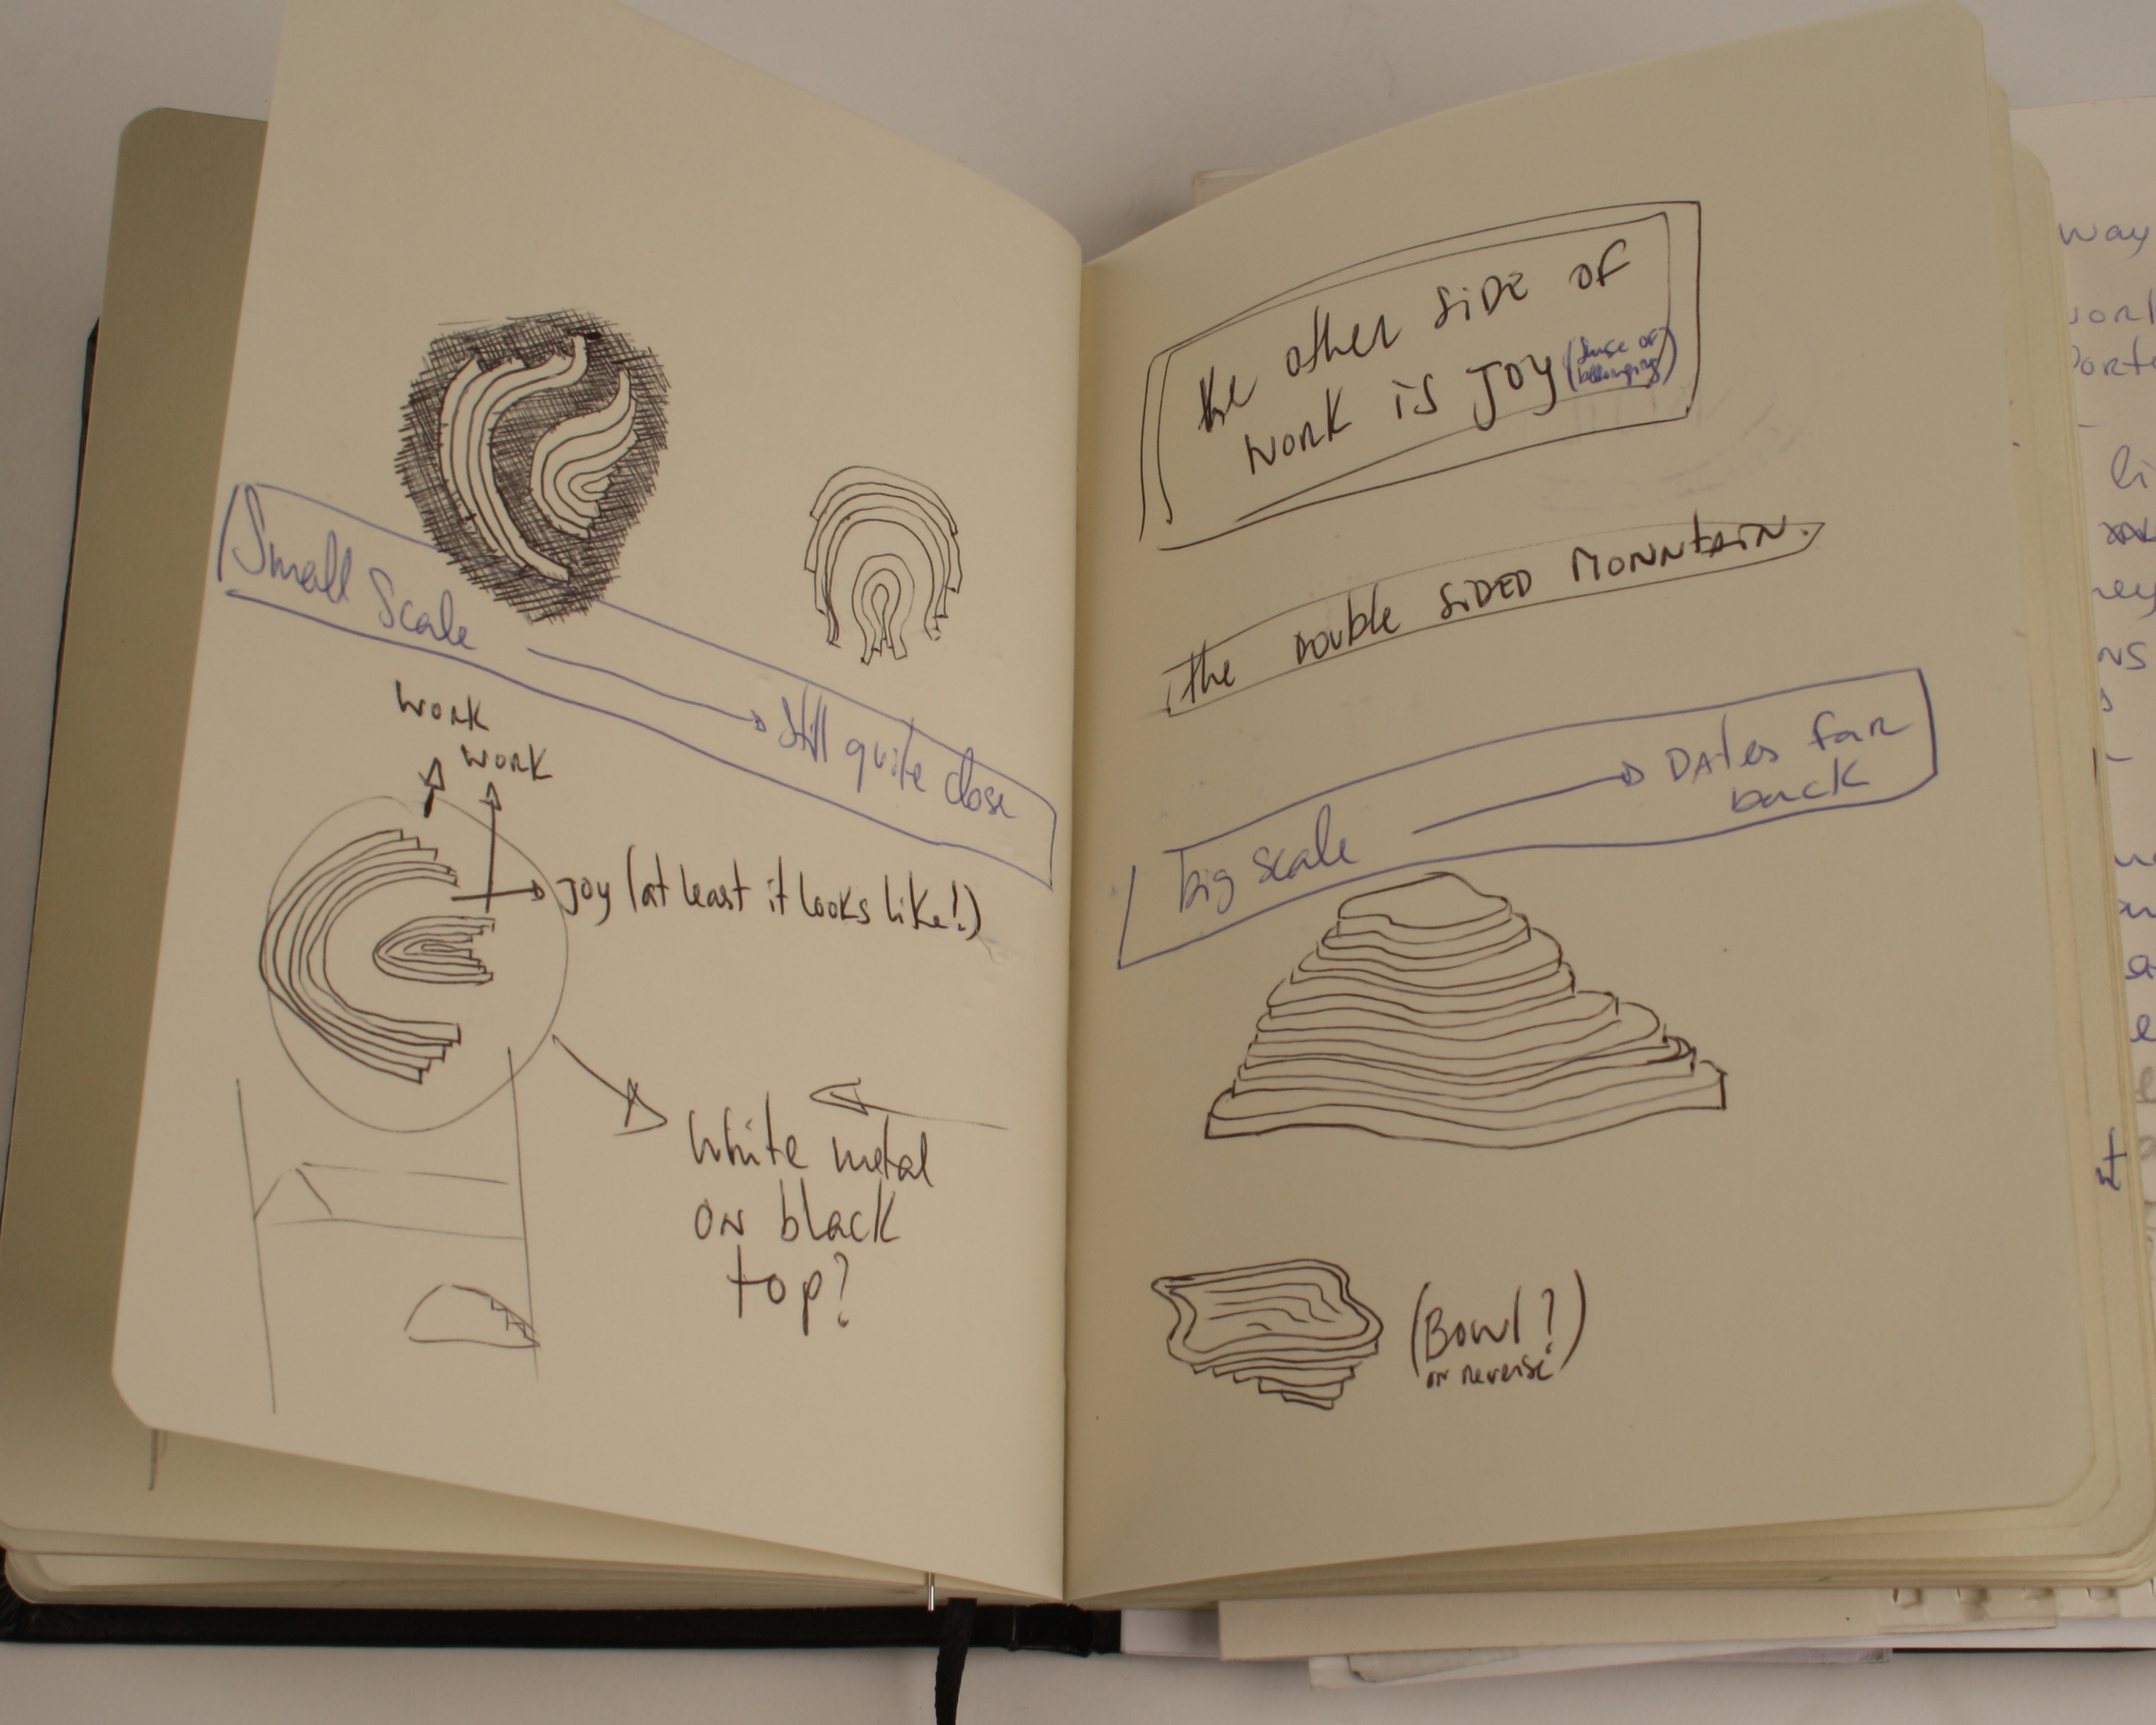 Small Scale → Still quite close
work
work
Joy (at least it looks like!)
white metal
on black
top?
the other side of
work is Joy (sense of
belonging)
the double sided monntain.
big scale → Dates far
back
(Bowl?
or reverse)
way